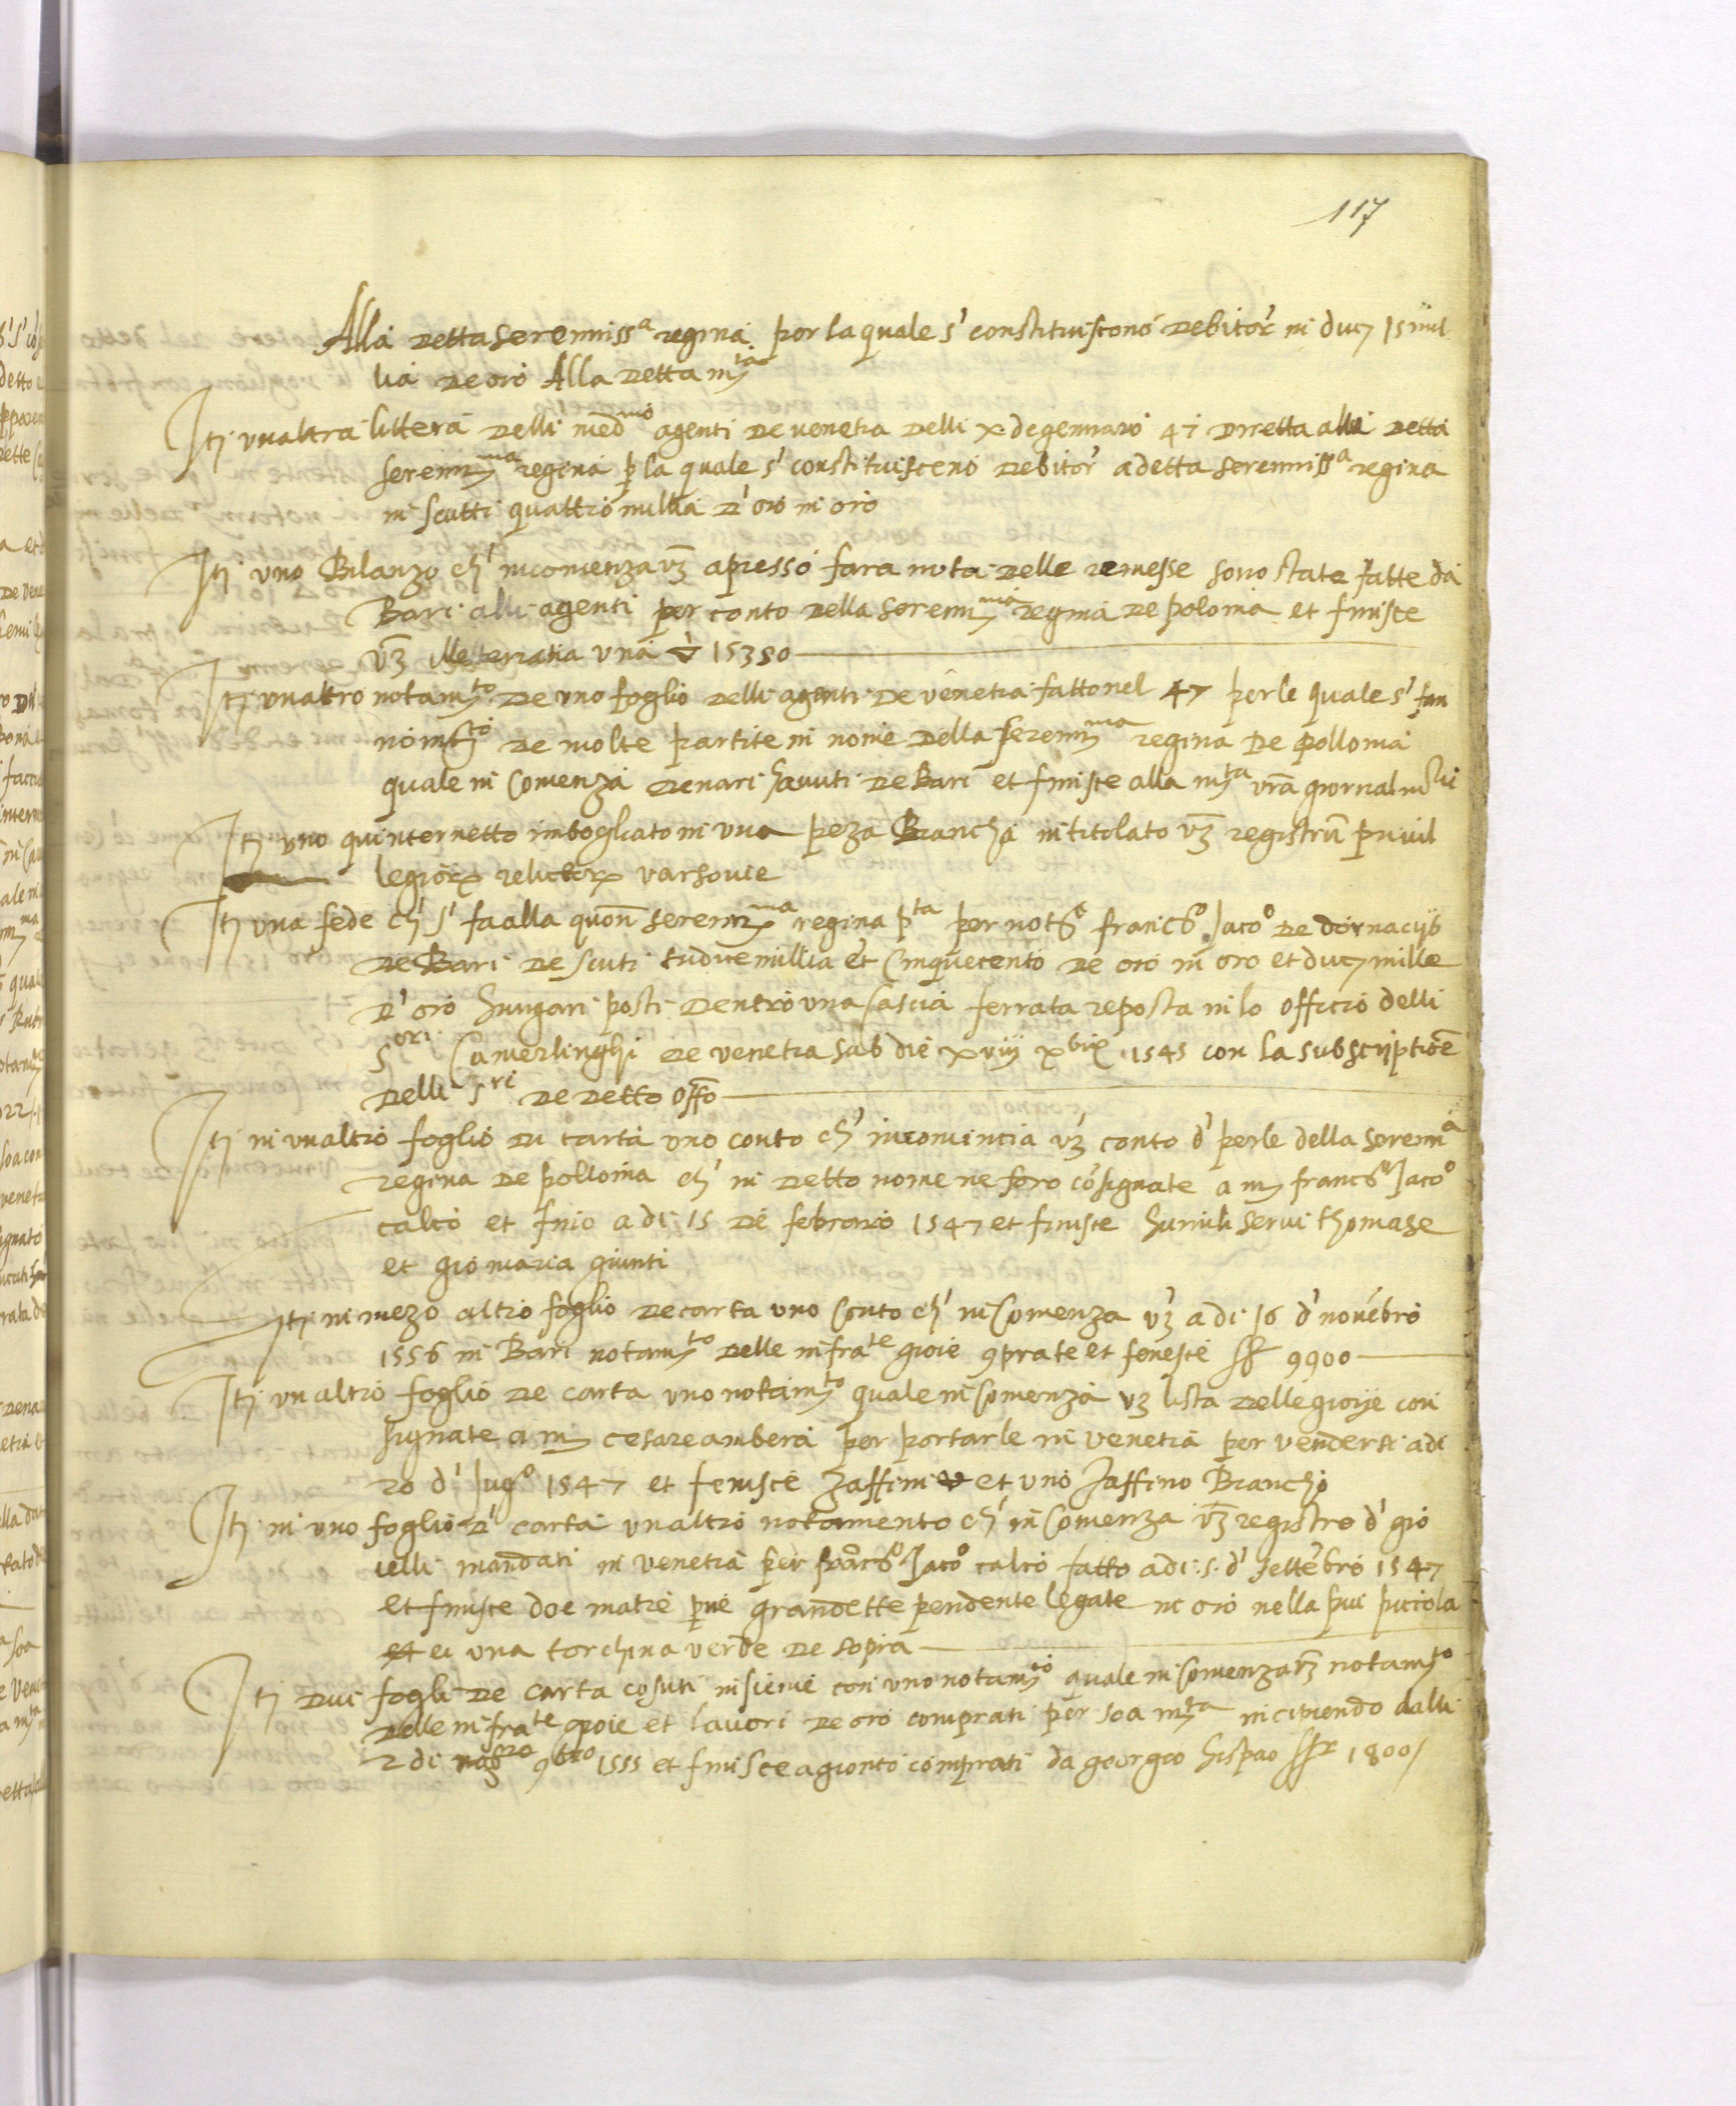 117
Alla detta sereniss^a regina per la quale s' constituiscono debitor' in duc. 15 mil
lia de oro Alla detta m^ta
Itē unaltra littera delli med^mi agenti de venetia delli x de gennaro 47 diretta alla detta
seren^ma regina p la quale s' constituisceno debitor' a detta sereniss^a regina
in scutti quattro millia d'oro in oro
Itē uno Bilanzo ch' incomenza vz apresso fara nota delle remesse sono state fatte da
Bari alli agenti per conto della seren^ma regina de polonia et finisce
vz una 15380
Itē unaltro notam^to de uno foglio delli agenti de venetia fatto nel 47 per le quale s' fan
nom^to de molte partite in nome della seren^ma regina de pollonia
quale in comenza denari havuti de Bari et finisce alla m^ta vrā giornalm^te
Itē uno quinternetto imbogliato in una peza Biancha intitolato vz registrū privil
legior. relictor. varsovie
Itē una fede ch' s' fa alla quon̄ seren^ma regina p^ta per not^o franc^o Jac^o de
de Bari de scuti millia et Cinquecento de oro in oro et duc. mille
d'oro hungari posti dentro una cascia ferrata reposta in lo officio delli
s^ori Camerlinghi de venetia sub die xviij xbris 1545 con la subscriptiōe
delli s^ri de detto offō
Itē in unaltro foglio di carta uno conto ch' incomincia vz conto d' perle della seren^a
regina de pollonia ch' in detto nome ne foro cōsignate a m. franc^o Jac^o
calcò et fnio a di 15 de febraro 1547 et finisce humili servi thomase
et gio maria giunti
Itē in mezo altro foglio de carta uno Conto ch' in Comenza vz a di 16 d' novēbro
1556 in Bari notam^to delle infra^te gioie 9prate et fenesce 9900
Itē un altro foglio de carta uno notam^to quale in Comenza vz lista delle gioije con
signate a m. cesare ambera per portarle in venetia per vendersi a di
20 d' Jug^o 1547 et fenisce zaffini et uno zaffino Biancho
Itē in uno foglio d' carta unaltro notamento ch' in Comenza vz registro d' gio
ielli mandati in venetia per franc^o Jac^o calcò fatto a di 5 d' settēbro 1547
et finisce doe matre pue grandette pendente legate in oro nella piu piccola
et ei una torchina verde de sopra
Itē dui fogli de carta cosuti insieme con uno notam^to quale in Comenza vz notam^to
delle infra^te gioie et lavori de oro comprati per soa m^ta incipiendo dalli
2 di 9bro 1555 et finisce agionto comprati da georgeo hispao 1800